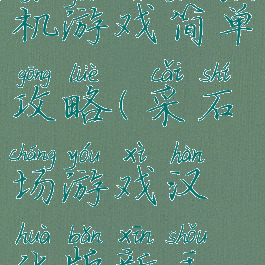 机游戏简单
gōng lüè cǎi shí
攻略(采石
chǎng yóu xì hàn
场游戏汉
huà bǎn xīn shǒu